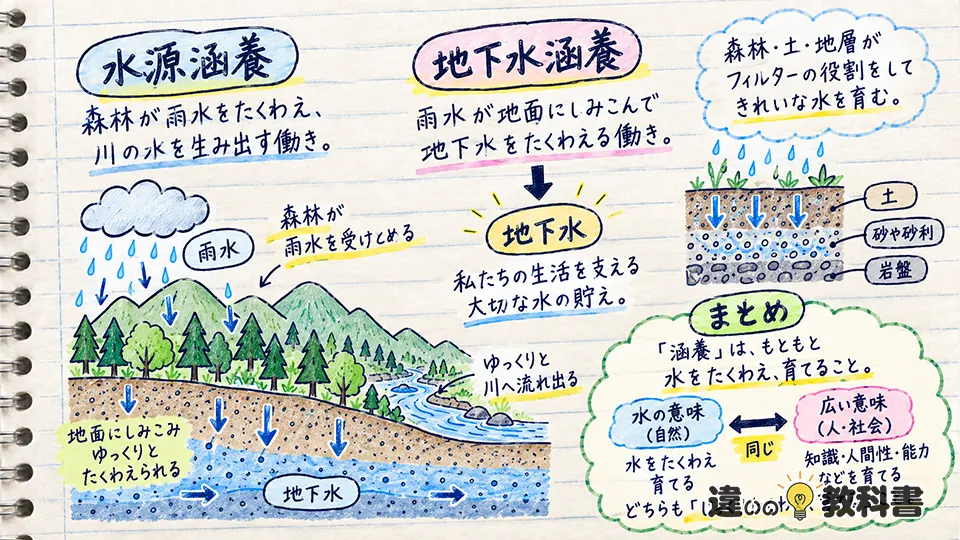 水源涵養
森林が雨水をたくわえ、
川の水を生み出す働き。
雨水
森林が
雨水を受けとめる
ゆっくりと
川へ流れ出る
地面にしみこみ
ゆっくりと
たくわえられる
地下水
地下水涵養
雨水が地面にしみこんで
地下水をたくわえる働き。
地下水
私たちの生活を支える
大切な水の貯え。
森林・土・地層が
フィルターの役割をして
きれいな水を育む。
土
砂や砂利
岩盤
まとめ
「涵養」は、もともと
水をたくわえ、育てること。
水の意味
(自然)
同じ
広い意味
(人・社会)
水をたくわえ
育てる
知識・人間性・能力
などを育てる
どちらも
違いの教科書